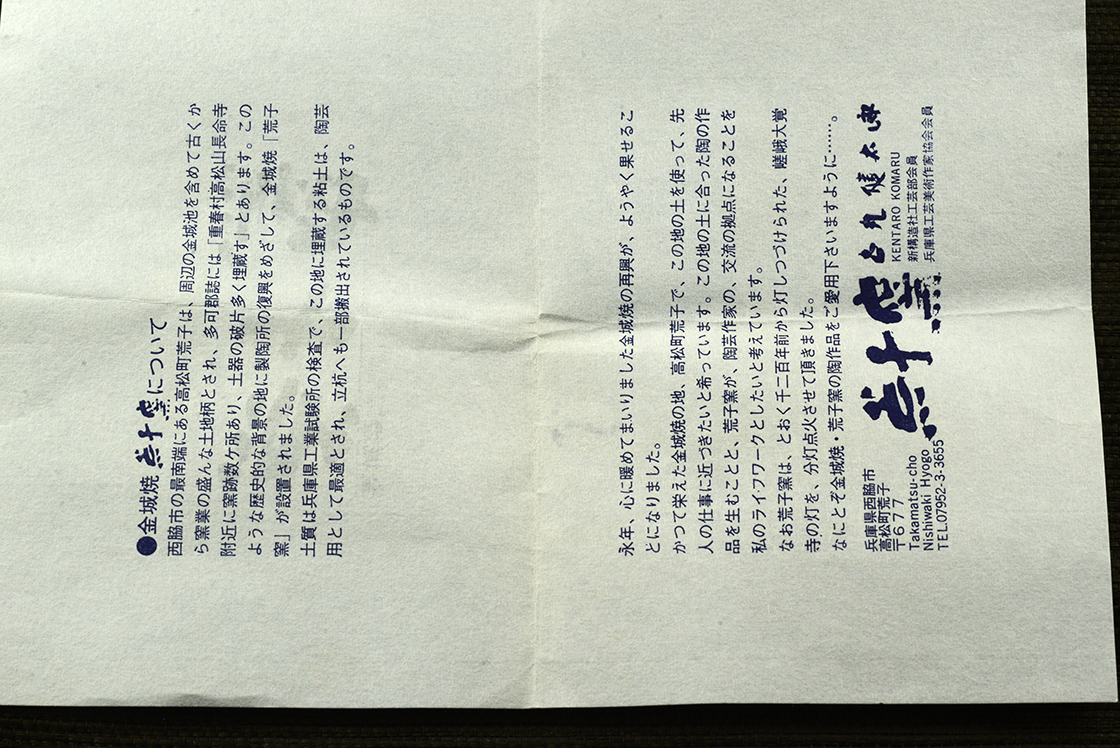 ●金城焼 荒子窯について
西脇市の最南端にある高松町荒子は、周辺の金城池を含めて古くか
ら窯業の盛んな土地柄とされ、多可郡誌には「重春村高松山長命寺
附近に窯跡数ケ所あり、土器の破片多く埋蔵す」とあります。この
ような歴史的な背景の地に製陶所の復興をめざして、金城焼「荒子
窯」が設置されました。
土質は兵庫県工業試験所の検査で、この地に埋蔵する粘土は、陶芸
用として最適とされ、立杭へも一部搬出されているものです。
永年、心に暖めてまいりました金城焼の再興が、ようやく果せるこ
とになりました。
かつて栄えた金城焼の地、高松町荒子で、この地の土を使って、先
人の仕事に近づきたいと希っています。この地の土に合った陶の作
品を生むことと、荒子窯が、陶芸作家の、交流の拠点になることを
私のライフワークとしたいと考えています。
なお荒子窯は、とおく千二百年前から灯しつづけられた、嵯峨大覚
寺の灯を、分灯点火させて頂きました。
なにとぞ金城焼・荒子窯の陶作品をご愛用下さいますように……。
兵庫県西脇市
高松町荒子
〒677
Takamatsu-cho
Nishiwaki Hyogo
TEL.07952-3-3655
荒子窯
KENTARO KOMARU
新構造社工芸部会員
兵庫県工芸美術作家協会会員